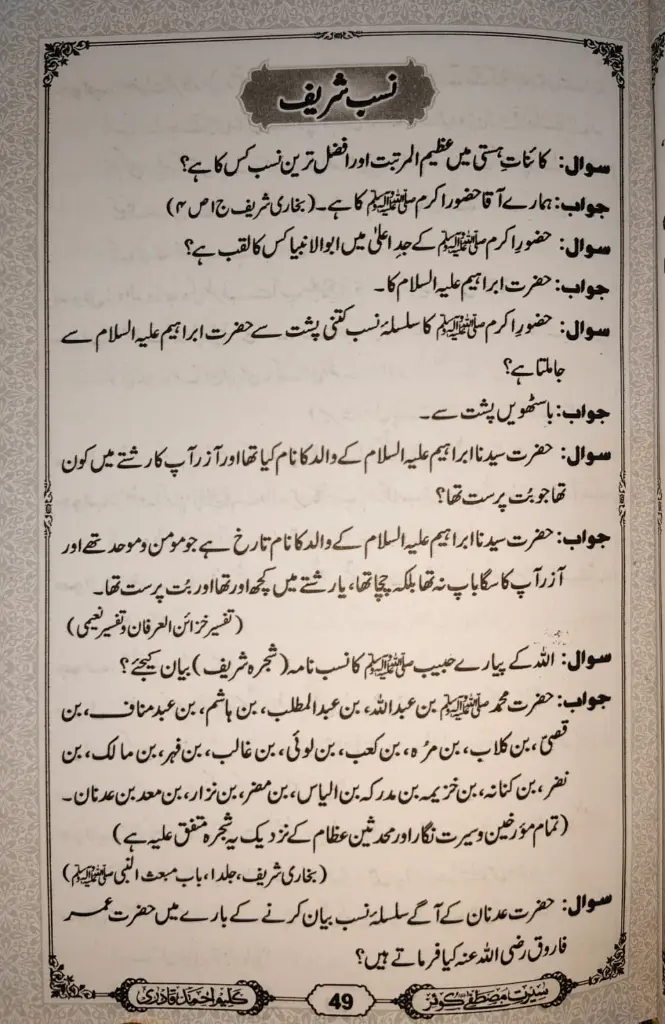 نسب شریف
سوال: کائناتِ ہستی میں عظیم المرتبت اور افضل ترین نسب کس کا ہے؟
جواب: ہمارے آقا حضور اکرم ﷺ کا ہے۔ (بخاری شریف ج ۱ ص ۴)
سوال: حضورِ اکرم ﷺ کے جدِ اعلیٰ میں ابوالانبیا کس کا لقب ہے؟
جواب: حضرت ابراہیم علیہ السلام کا۔
سوال: حضورِ اکرم ﷺ کا سلسلۂ نسب کتنی پشت سے حضرت ابراہیم علیہ السلام سے
جاملتا ہے؟
جواب: باسٹھویں پشت سے۔
سوال: حضرت سیدنا ابراہیم علیہ السلام کے والد کا نام کیا تھا اور آزر آپ کا رشتے میں کون
تھا جو بُت پرست تھا؟
جواب: حضرت سیدنا ابراہیم علیہ السلام کے والد کا نام تارخ ہے جو مومن و موحد تھے اور
آزر آپ کا سگا باپ نہ تھا بلکہ چچا تھا، یا رشتے میں کچھ اور تھا اور بُت پرست تھا۔
(تفسیر خزائن العرفان و تفسیر نعیمی)
سوال: اللہ کے پیارے حبیب ﷺ کا نسب نامہ (شجرہ شریف) بیان کیجئے؟
جواب: حضرت محمد ﷺ بن عبداللہ، بن عبدالمطلب، بن ہاشم، بن عبد مناف، بن
قصیّ، بن کلاب، بن مرّہ، بن کعب، بن لوئی، بن غالب، بن فہر، بن مالک، بن
نضر، بن کنانہ، بن خزیمہ بن مدرکہ بن الیاس، بن مضر، بن نزار، بن معد بن عدنان۔
(تمام مؤرخین و سیرت نگار اور محدثین عظام کے نزدیک یہ شجرہ متفق علیہ ہے)
(بخاری شریف، جلد ۱، باب مبعث النبی ﷺ)
سوال: حضرت عدنان کے آگے سلسلۂ نسب بیان کرنے کے بارے میں حضرت عمر
فاروق رضی اللہ عنہ کیا فرماتے ہیں؟
سیرت مصطفےٰ ﷺ کوئز 49 کلیم احمد قادری